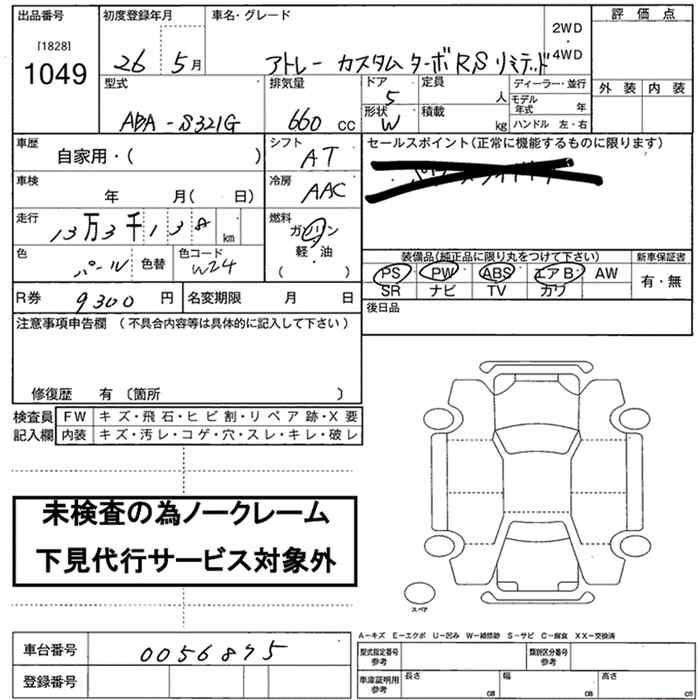 出品番号
[1828]
1049
初度登録年月
26 5月
車名・グレード
アトレー カスタム ターボRS リミテッド
2WD
4WD
評価点
外装 内装
型式
ABA-S321G
排気量
660 cc
ドア
5
形状
W
定員
人
積載
kg
ディーラー・並行
モデル年式 年
ハンドル 左・右
車歴
自家用・( )
シフト
AT
セールスポイント(正常に機能するものに限ります)
車検
年 月( 日)
冷房
AAC
走行
13万3千138 km
燃料
ガソリン
軽・油
( )
色
パール
色替
色コード
W24
装備品(純正品に限り丸をつけて下さい)
PS PW ABS エアB AW
SR ナビ TV カワ
新車保証書
有・無
R券 9300 円
名変期限 月 日
後日品
注意事項申告欄 (不具合内容等は具体的に記入して下さい)
修復歴 有〔箇所 〕
検査員記入欄
FW キズ・飛石・ヒビ割・リペア跡・X要
内装 キズ・汚レ・コゲ・穴・スレ・キレ・破レ
未検査の為ノークレーム
下見代行サービス対象外
スペア
A-キズ E-エクボ U-凹み W-補修跡 S-サビ C-腐食 XX-交換済
車台番号 0056875
登録番号
型式指定番号参考
類別区分番号参考
車庫証明用参考
長さ cm
幅 cm
高さ cm